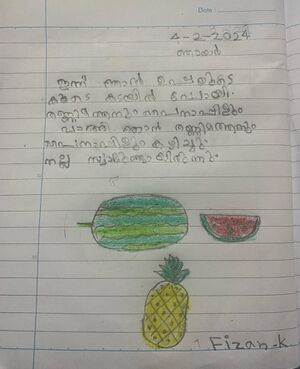 Date :
4-2-2024
ഞായർ
ഇന്ന് ഞാൻ ഉപ്പയുടെ
കൂടെ കടയിൽ പോയി.
തണ്ണിമത്തനും പൈനാപ്പിളും
വാങ്ങി ഞാൻ തണ്ണിമത്തനും
പൈനാപ്പിളും കഴിച്ചു
നല്ല സ്വാദുണ്ടായിരുന്നു.
Fizan-k